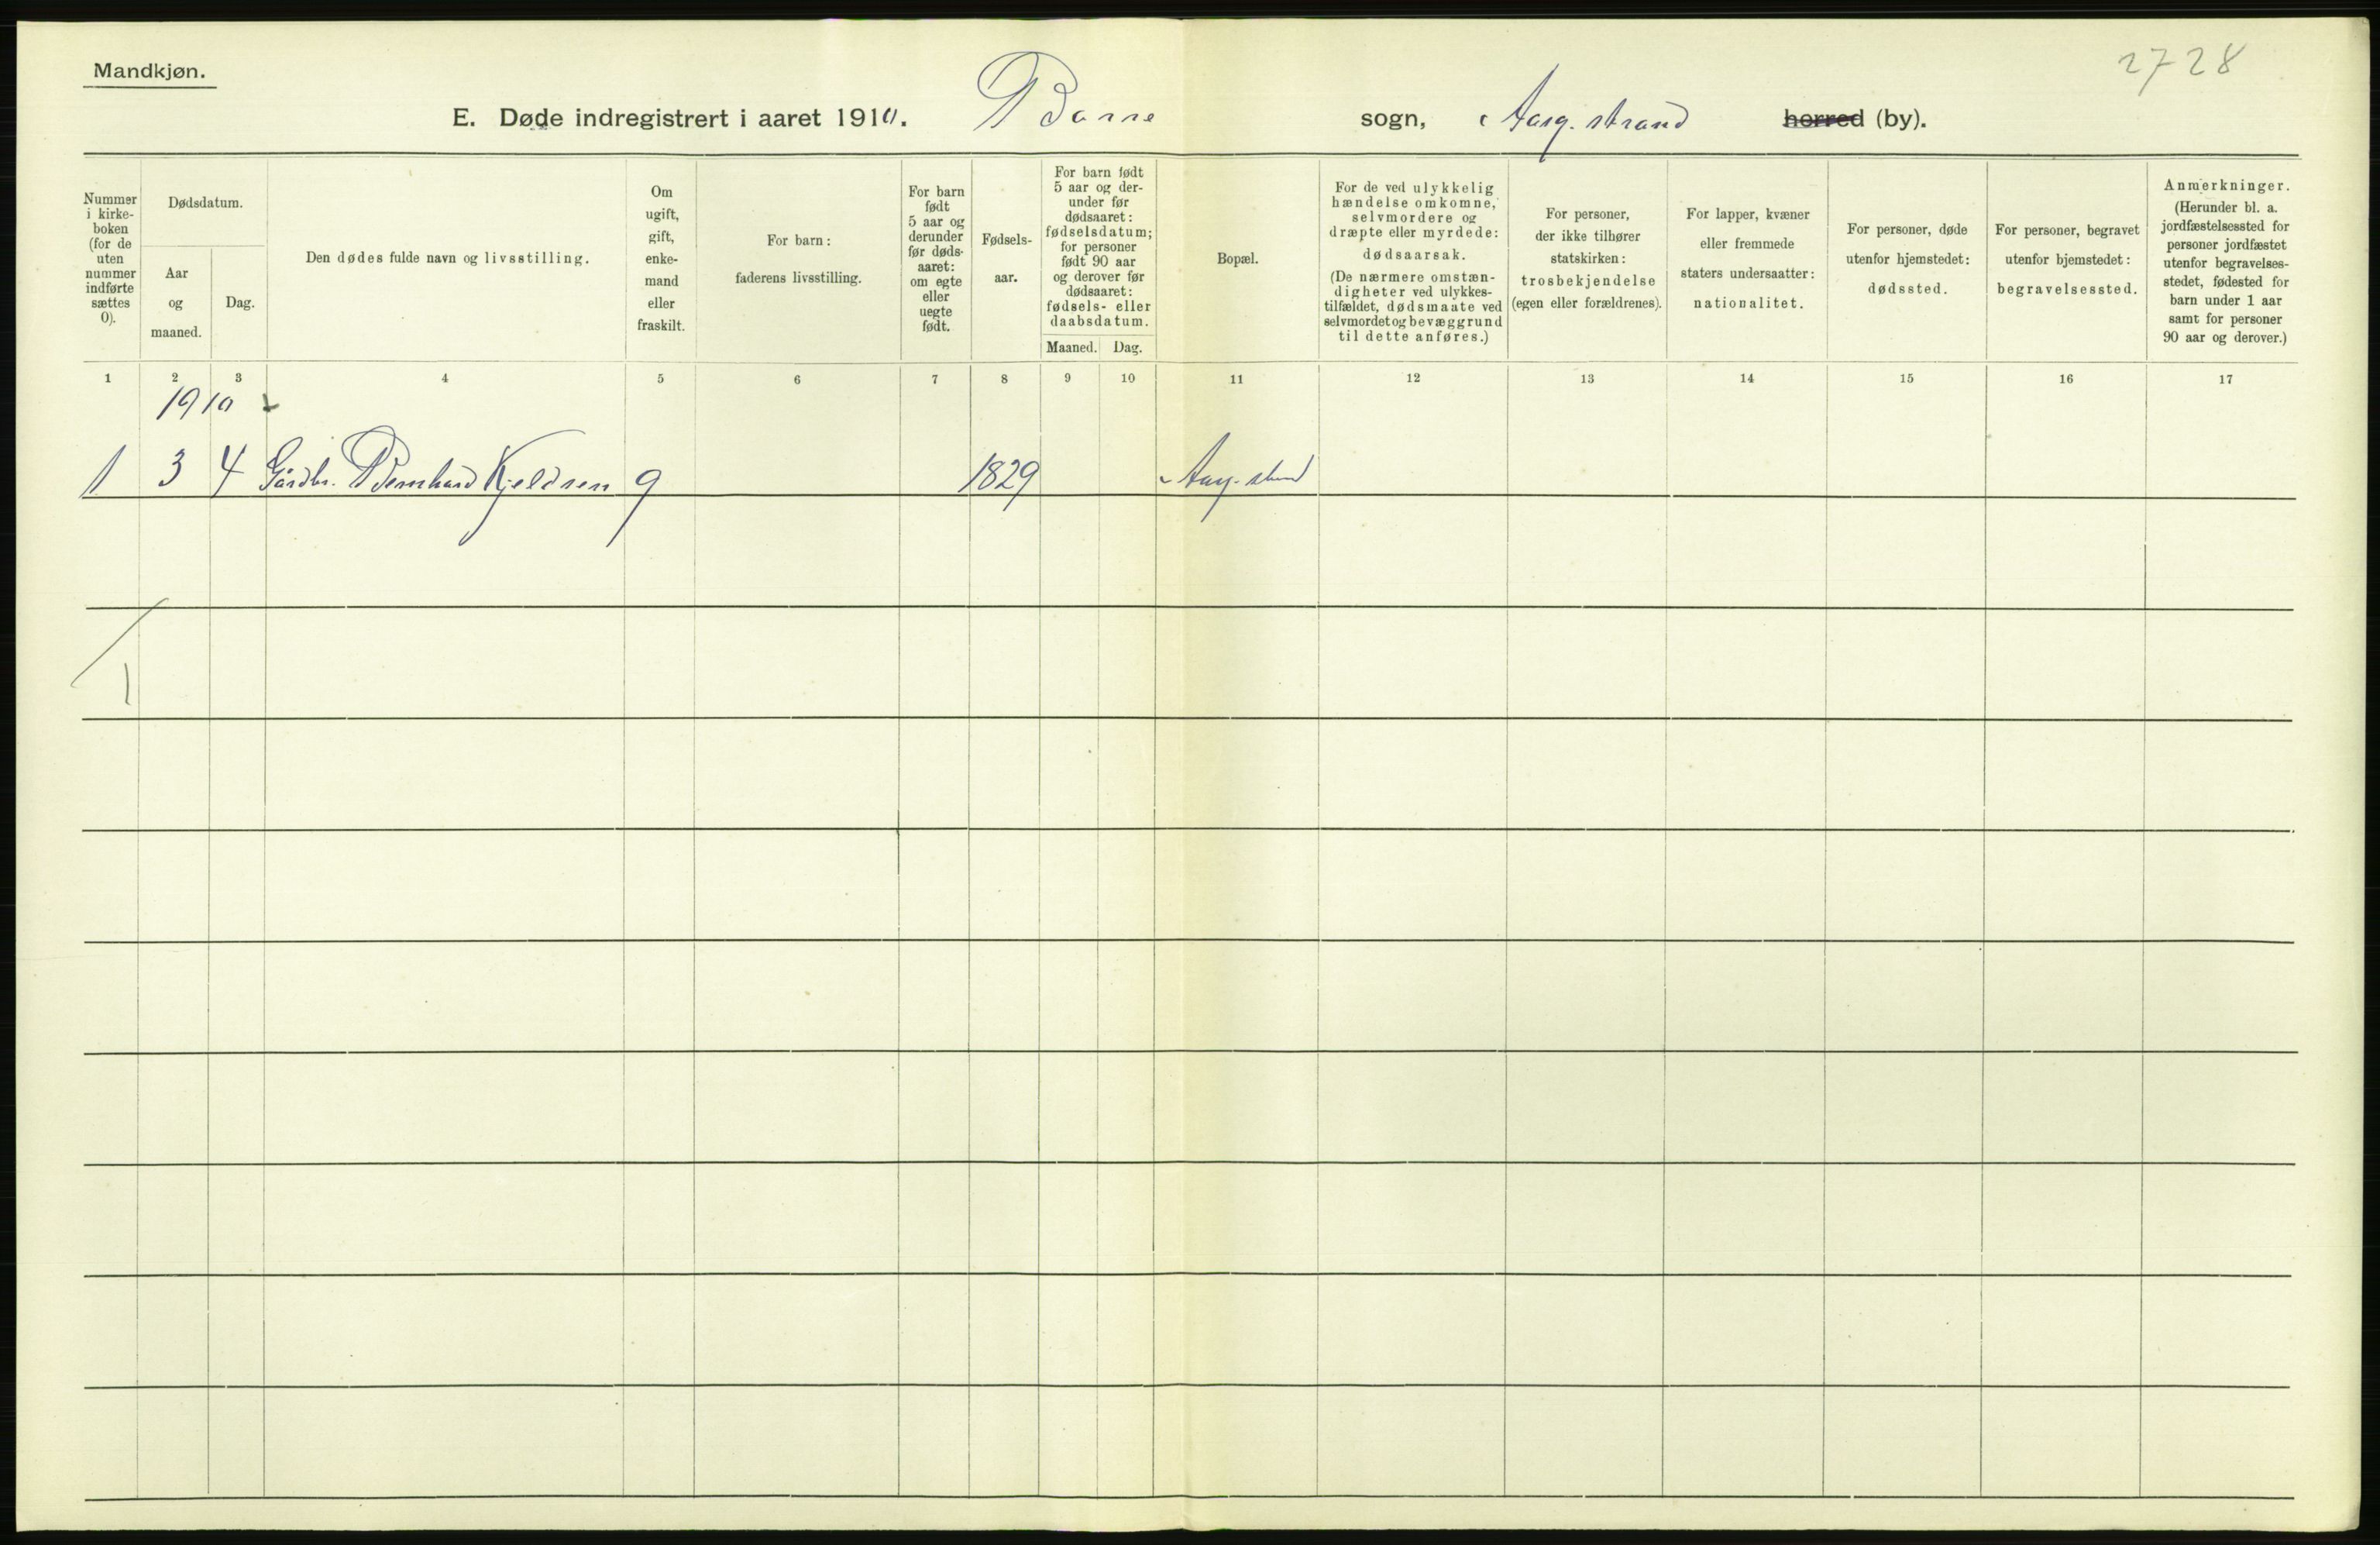 Mandkjøn.
2728
E. Døde indregistrert i aaret 1910. Borre sogn, Aasg.strand herred (by).
Nummer i kirke-
boken
(for de
uten
nummer
indførte
sættes
0).
Dødsdatum.
Aar
og
maaned.
Dag.
Den dødes fulde navn og livsstilling.
Om
ugift,
gift,
enke-
mand
eller
fraskilt.
For barn:
faderens livsstilling.
For barn
født
5 aar og
derunder
før døds-
aaret:
om egte
eller
uegte
født.
Fødsels-
aar.
For barn født
5 aar og der-
under før
dødsaaret:
fødselsdatum;
for personer
født 90 aar
og derover før
dødsaaret:
fødsels- eller
daabsdatum.
Maaned. Dag.
Bopæl.
For de ved ulykkelig
hændelse omkomne,
selvmordere og
dræpte eller myrdede:
dødsaarsak.
(De nærmere omstæn-
digheter ved ulykkes-
tilfældet, dødsmaate ved
selvmordet og bevæggrund
til dette anføres.)
For personer,
der ikke tilhører
statskirken:
trosbekjendelse
(egen eller forældrenes).
For lapper, kvæner
eller fremmede
staters undersaatter:
nationalitet.
For personer, døde
utenfor hjemstedet:
dødssted.
For personer, begravet
utenfor hjemstedet:
begravelsessted.
Anmerkninger.
(Herunder bl. a.
jordfæstelsessted for
personer jordfæstet
utenfor begravelses-
stedet, fødested for
barn under 1 aar
samt for personer
90 aar og derover.)
1 2 3 4 5 6 7 8 9 10 11 12 13 14 15 16 17
1910
1 3 4 Gårdbr. Bernhard Kjeldsen g 1829 Aasg.strand
1